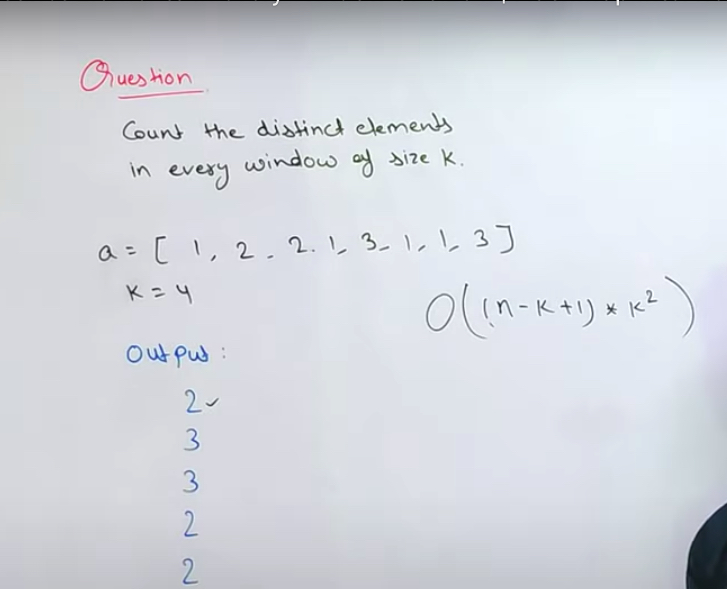 Question
Count the distinct elements
in every window of size K.
a = [ 1, 2, 2, 1, 3, 1, 1, 3 ]
K = 4
O((n-K+1) * K²)
Output :
2✓
3
3
2
2